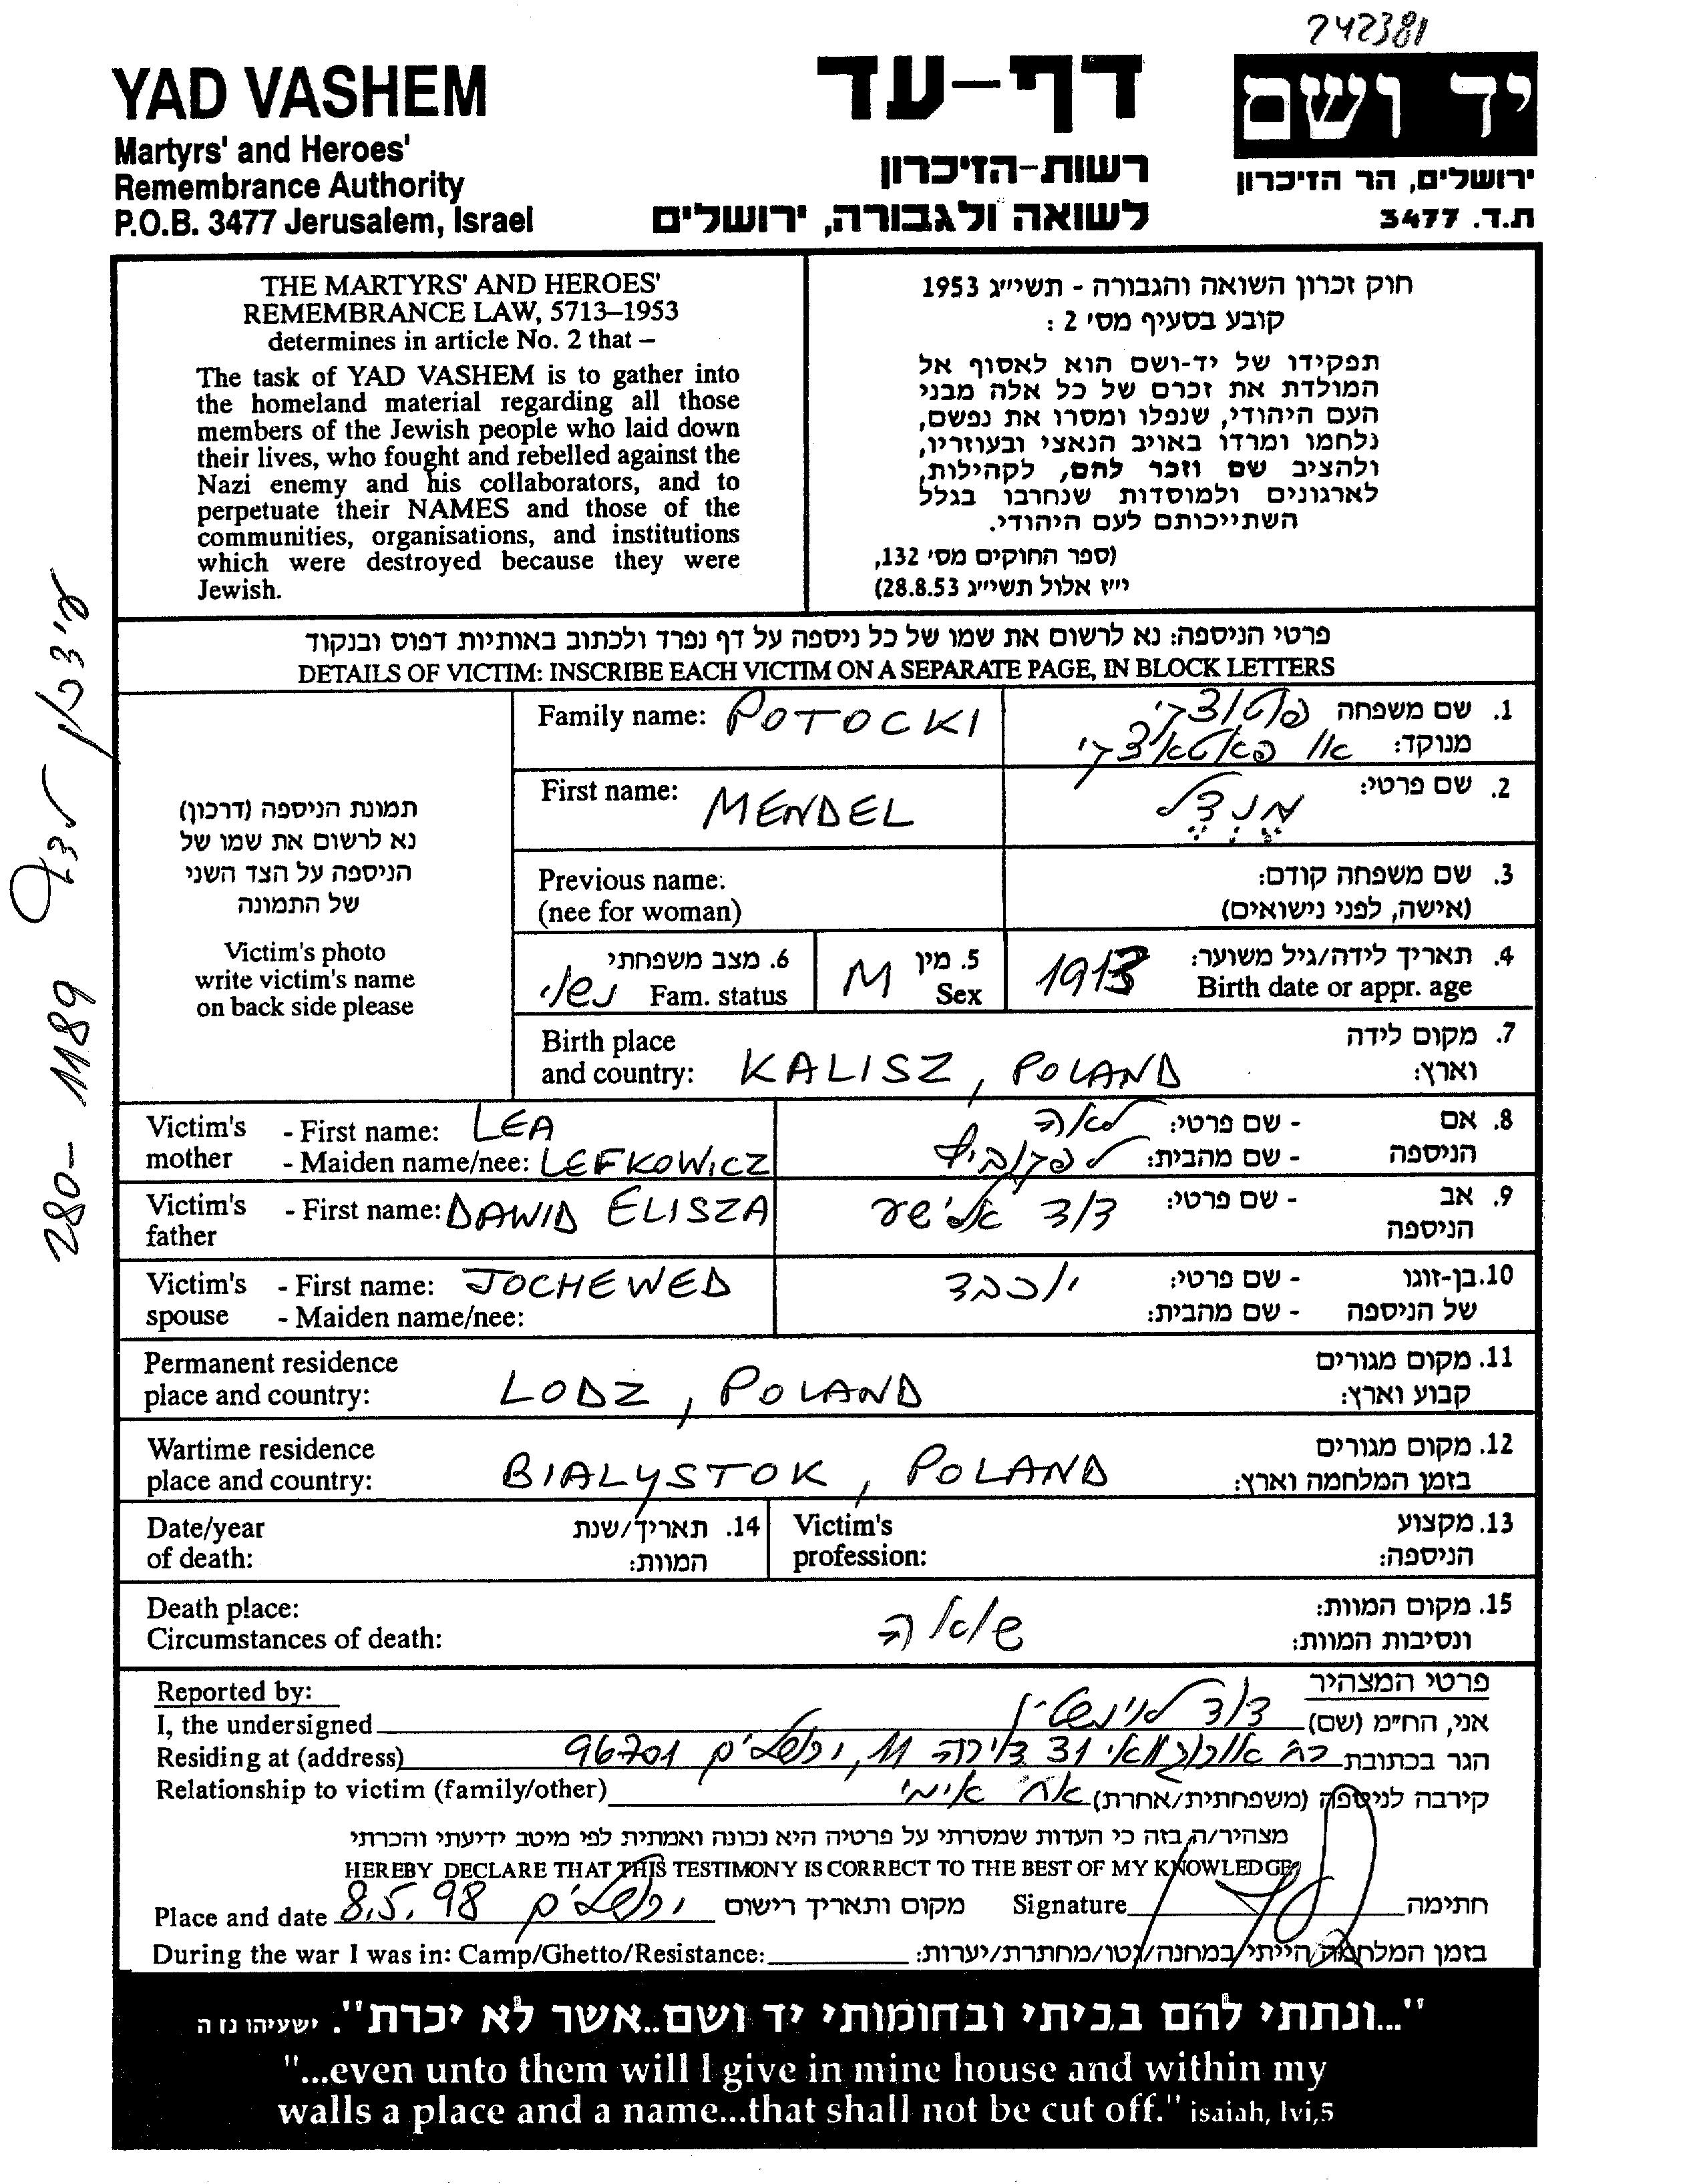 242381
YAD VASHEM
Martyrs' and Heroes'
Remembrance Authority
P.O.B. 3477 Jerusalem, Israel
דף-עד
רשות-הזיכרון
לשואה ולגבורה, ירושלים
יד ושם
ירושלים, הר הזיכרון
ת.ד. 3477
THE MARTYRS' AND HEROES'
REMEMBRANCE LAW, 5713–1953
determines in article No. 2 that –
The task of YAD VASHEM is to gather into
the homeland material regarding all those
members of the Jewish people who laid down
their lives, who fought and rebelled against the
Nazi enemy and his collaborators, and to
perpetuate their NAMES and those of the
communities, organisations, and institutions
which were destroyed because they were
Jewish.
חוק זכרון השואה והגבורה - תשי״ג 1953
קובע בסעיף מס׳ 2 :
תפקידו של יד-ושם הוא לאסוף אל
המולדת את זכרם של כל אלה מבני
העם היהודי, שנפלו ומסרו את נפשם,
נלחמו ומרדו באויב הנאצי ובעוזריו,
ולהציב שם וזכר להם, לקהילות,
לארגונים ולמוסדות שנחרבו בגלל
השתייכותם לעם היהודי.
(ספר החוקים מס׳ 132,
י״ז אלול תשי״ג 28.8.53)
פרטי הניספה: נא לרשום את שמו של כל ניספה על דף נפרד ולכתוב באותיות דפוס ובנקוד
DETAILS OF VICTIM: INSCRIBE EACH VICTIM ON A SEPARATE PAGE, IN BLOCK LETTERS
תמונת הניספה (דרכון)
נא לרשום את שמו של
הניספה על הצד השני
של התמונה
Victim's photo
write victim's name
on back side please
Family name: POTOCKI
1. שם משפחה פוטוצקי
מנוקד: או פאטאצקי
First name: MENDEL
2. שם פרטי: מֶנְדֶל
Previous name:
(nee for woman)
3. שם משפחה קודם:
(אישה, לפני נישואים)
6. מצב משפחתי
Fam. status נשוי
5. מין
Sex M
4. תאריך לידה/גיל משוער:
Birth date or appr. age 1913
Birth place
and country: KALISZ, POLAND
7. מקום לידה
וארץ:
Victim's - First name: LEA
mother - Maiden name/nee: LEFKOWICZ
8. אם - שם פרטי: לאה
הניספה - שם מהבית: לפקוביץ
Victim's - First name: DAWID ELISZA
father
9. אב - שם פרטי: דוד אלישע
הניספה
Victim's - First name: JOCHEWED
spouse - Maiden name/nee:
10. בן-זוגו - שם פרטי: יוכבד
של הניספה - שם מהבית:
Permanent residence
place and country: LODZ, POLAND
11. מקום מגורים
קבוע וארץ:
Wartime residence
place and country: BIALYSTOK, POLAND
12. מקום מגורים
בזמן המלחמה וארץ:
Date/year
of death:
14. תאריך/שנת
המוות:
Victim's
profession:
13. מקצוע
הניספה:
Death place:
Circumstances of death:
15. מקום המוות:
ונסיבות המוות:
שואה
Reported by:
פרטי המצהיר
I, the undersigned
אני, הח״מ (שם) דוד
Residing at (address)
הגר בכתובת 31 דירה 11, ירושלים 96701
Relationship to victim (family/other)
קירבה לניספה (משפחתית/אחרת) אחי אימי
מצהיר/ה בזה כי העדות שמסרתי על פרטיה היא נכונה ואמתית לפי מיטב ידיעתי והכרתי
HEREBY DECLARE THAT THIS TESTIMONY IS CORRECT TO THE BEST OF MY KNOWLEDGE
Place and date 8.5.98 ירושלים מקום ותאריך רישום
Signature חתימה
During the war I was in: Camp/Ghetto/Resistance:
בזמן המלחמה הייתי במחנה/גטו/מחתרת/יערות:
"...ונתתי להם בביתי ובחומותי יד ושם..אשר לא יכרת". ישעיהו נו ה
"...even unto them will I give in mine house and within my
walls a place and a name...that shall not be cut off." isaiah, lvi,5
280- 1189